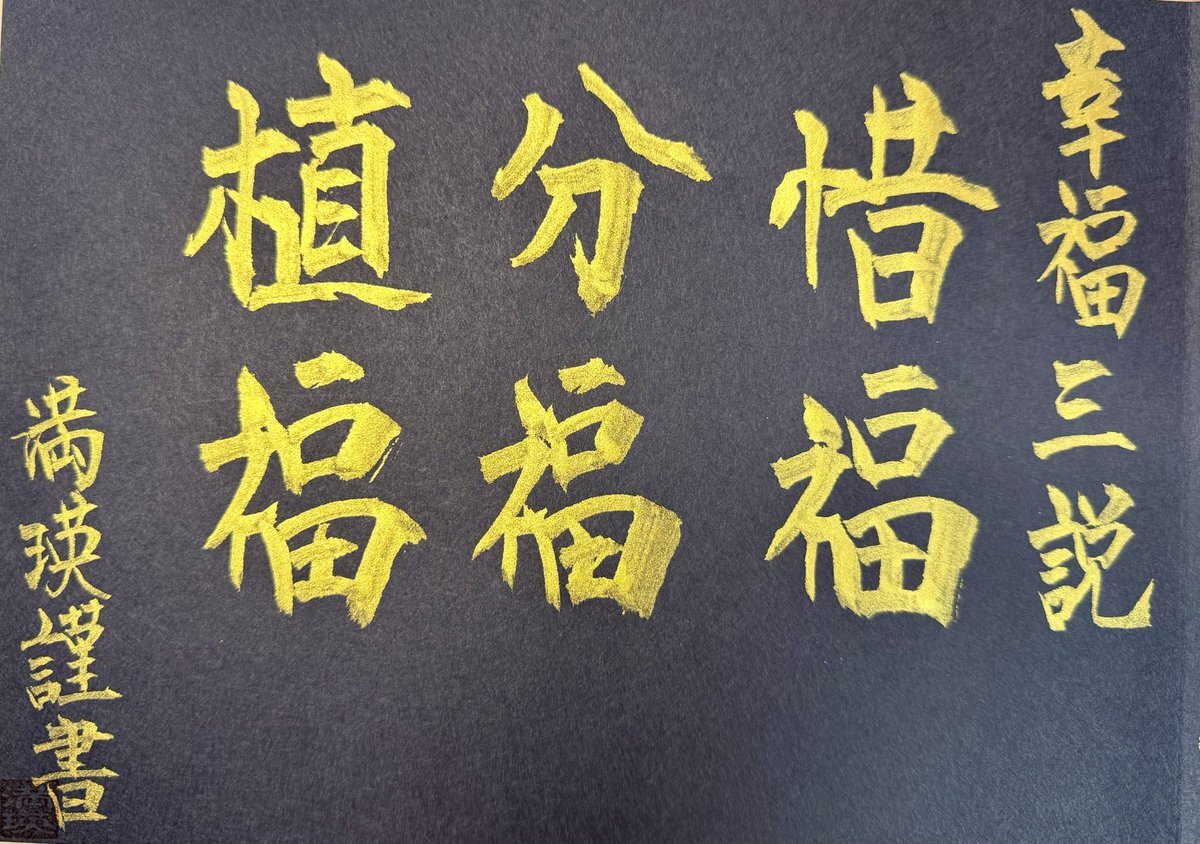 幸福三説
惜福
分福
植福
満瑛謹書